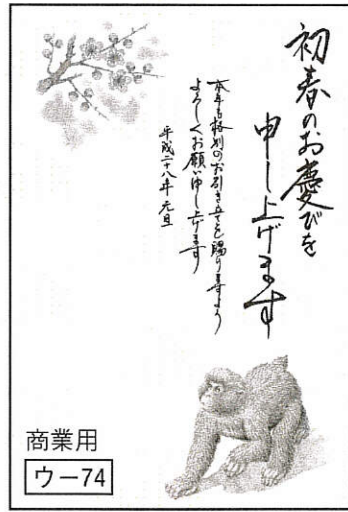 初春のお慶びを
申し上げます
本年も格別のお引き立てを賜りますよう
よろしくお願い申し上げます
平成二十八年 元旦
商業用
ウー74